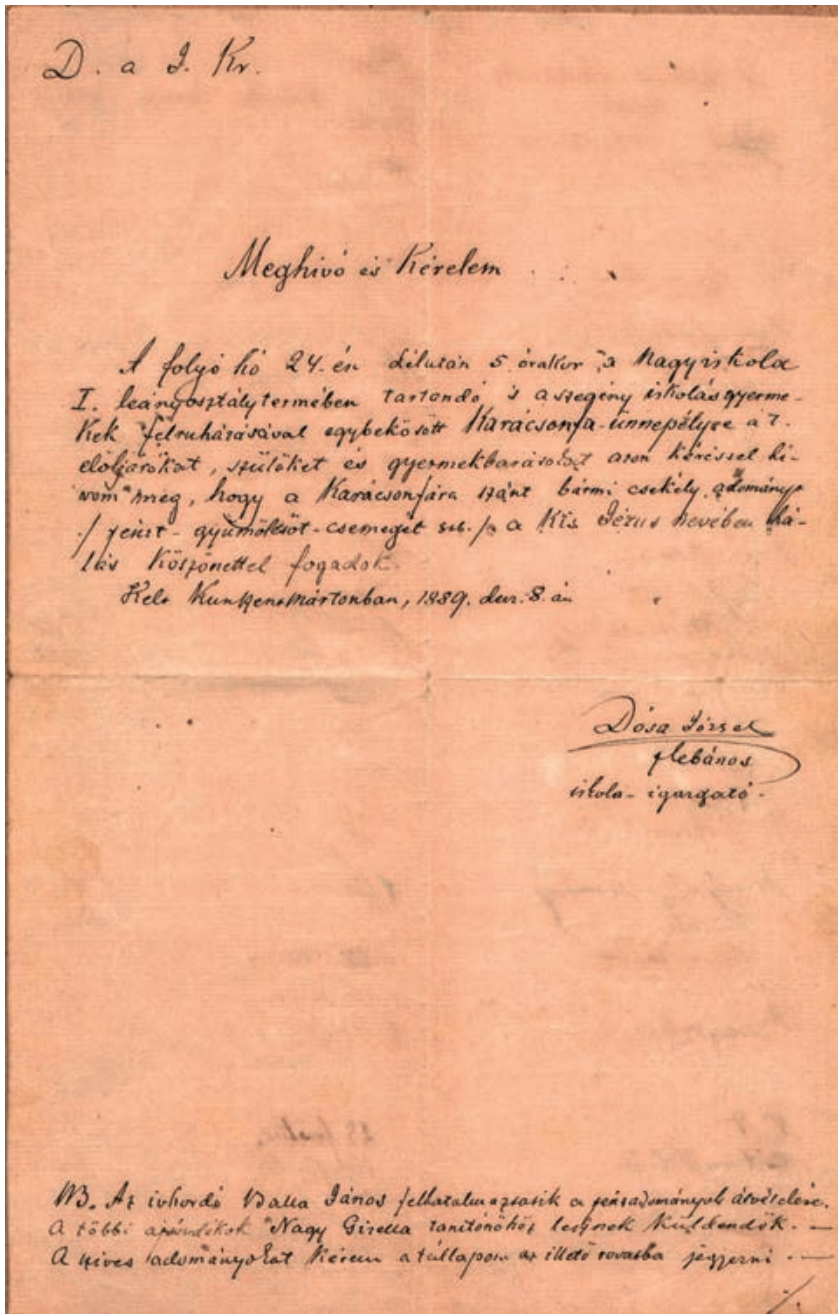 D. a J. Kr.
Meghivó és Kérelem
A folyó hó 24.-én délután 5 órakor, a Nagyiskola
I. leányosztálytermében tartandó, s a szegény iskolásgyerme-
kek felruházásával egybekötött Karácsonfa-ünnepélyre a T.
elöljárókat, szülőket és gyermekbarátokat azon kéréssel hi-
vom meg, hogy a Karácsonfára szánt bármi csekély adományt
/: pénzt - gyümölcsöt - csemegét stb. :/ a Kis Jézus nevében há-
lás köszönettel fogadok.
Kelt Kunszentmártonban, 1889. dec. 8.án
Dósa József
plebános
iskola-igazgató.
NB. Az ivhordó Balla János felhatalmaztatik a pénzadományok átvételére.
A többi ajándékok Nagy Gizella tanítónőhöz lesznek küldendők. —
A szives adományokat kérem a túllapon az illető rovatba jegyezni. —